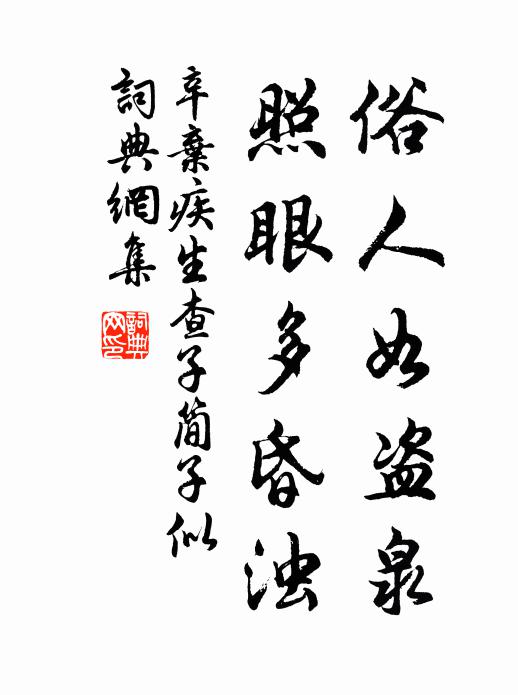 俗人如盗泉
照眼多昏浊
辛棄疾生查子简子似
詞典網集
詞典
网印